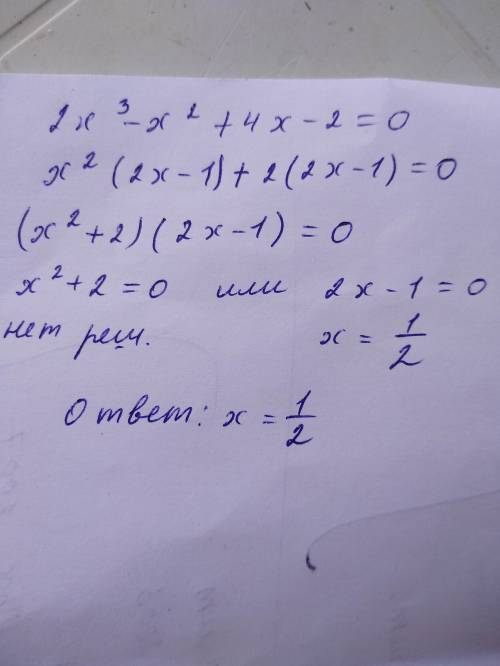 2x³ - x² + 4x - 2 = 0
x² (2x - 1) + 2 (2x - 1) = 0
(x² + 2) (2x - 1) = 0
x² + 2 = 0 или 2x - 1 = 0
нет реш. x = 1/2
Ответ: x = 1/2